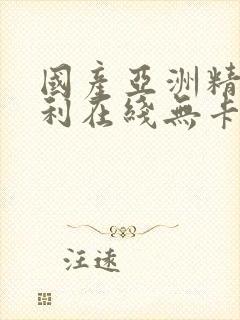 國產亞洲精
利在綫無卡
注速